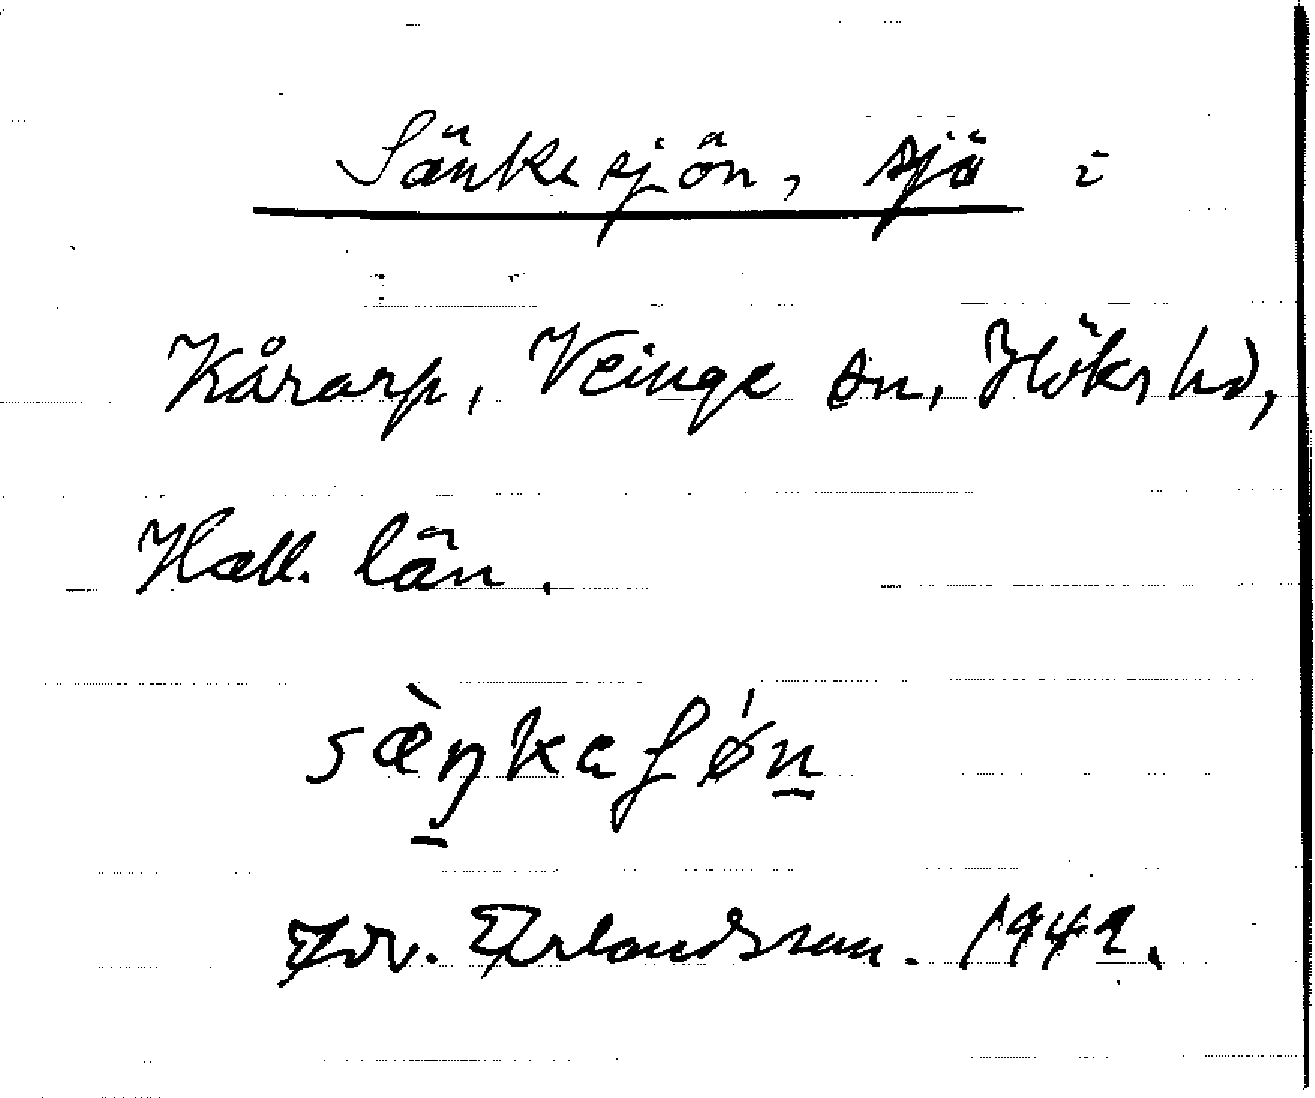 Sänkesjön, sjö i
Kårarp, Veinge sn, Höks hd,
Hall. län.
sæ̀ŋkaʃǿn
Edv. Erlandsson. 1942.